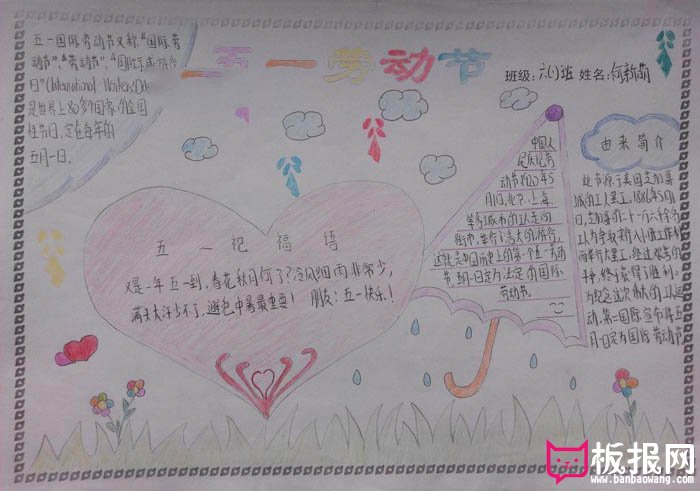 五一劳动节
班级:六(1)班 姓名:何新萌
五一国际劳动节又称"国际劳
动节"、"劳动节"、"国际示威游行
日"(International Workers'Day
是世界上80多个国家的全国
性节日,定在每年的
五月一日。
五一祝福语
又是一年五一到,春花秋月何了?冷风细雨非常少,
满天太洋少不了,避包中暑最重要! 朋友:五一快乐!
中国人
民庆祝劳
动节1920年5
月1日,北京、上海、
等城市的工人走向
街市,举行了浩大的游行,
这就是中国历史上的第一个五一劳动
节,5月1日定为法定的国际
劳动节。
由来简介
此节源于美国芝加哥
城的工人罢工,1886年5月1
日,芝加哥的二十一万六千余名
工人为争取8小时工作制
而举行大罢工,经过艰苦的斗
争,终于获得了胜利。
为纪念这次伟大的工人运
动,第二国际宣布将五
月一日定为国际劳动节
板报网
www.banbaowang.com